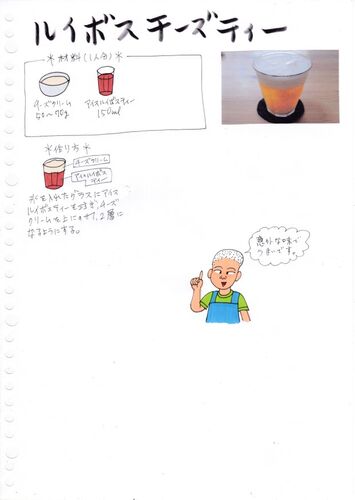 ルイボスチーズティー
＊材料(1人分)＊
チーズクリーム
50〜70g
アイスルイボスティー
150ml
＊作り方＊
チーズクリーム
アイスルイボス
ティー
氷を入れたグラスにアイス
ルイボスティーを注ぎ、チーズ
クリームを上にのせ、2層に
なるようにする。
意外な味で
うまいです。